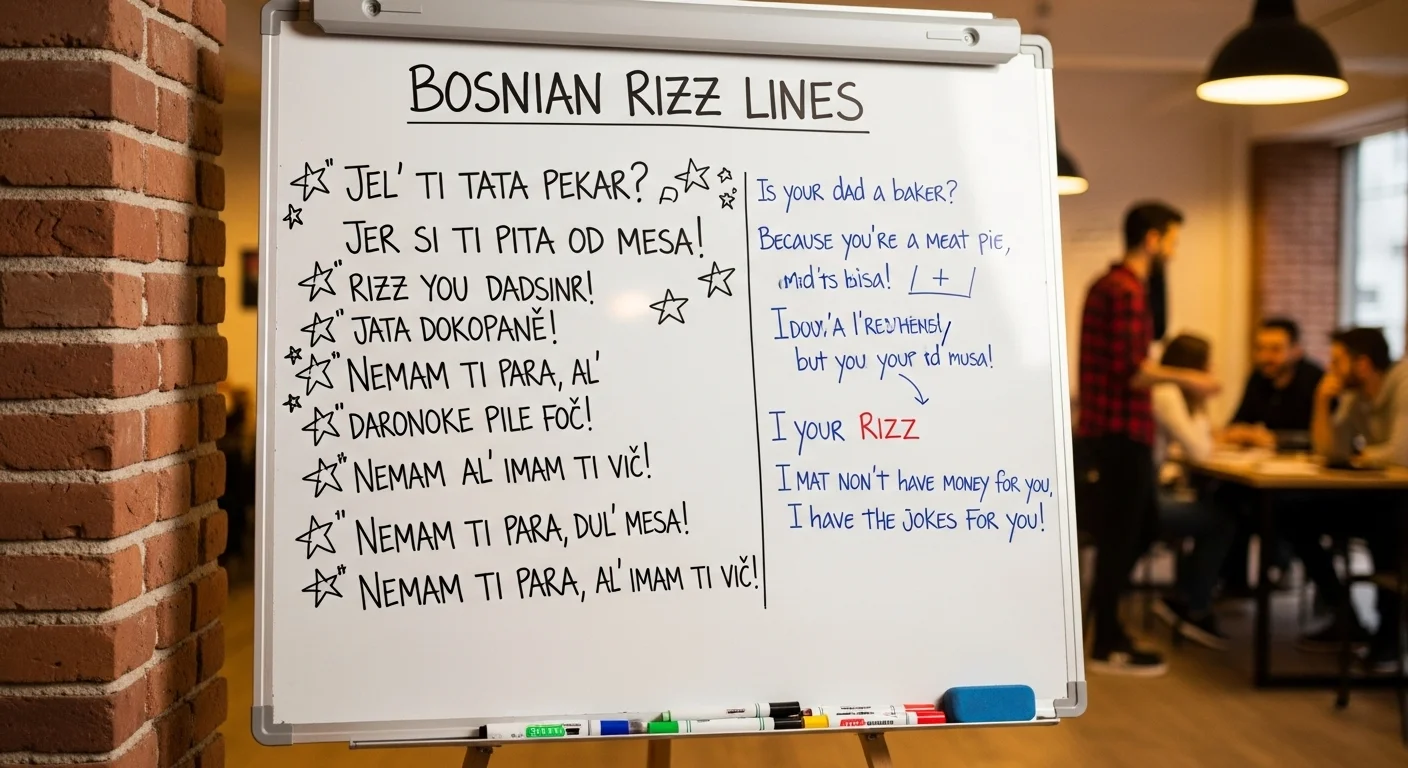 BOSNIAN RIZZ LINES
"JEL' TI TATA PEKAR?
JER SI TI PITA OD MESA!
"RIZZ YOU DADSINR!
"JATA DOKOPANĚ!
"NEMAM TI PARA, AL'
"DARONOKE PILE FOČ!
"NEMAM AL' IMAM TI VIČ!
"NEMAM TI PARA, DUL' MESA!
"NEMAM TI PARA, AL' IMAM TI VIČ!
Is your dad a baker?
BECAUSE YOU'RE A MEAT PIE,
bisa!
but you your musa!
I YOUR RIZZ
I MAT NON'T HAVE MONEY FOR YOU,
I HAVE THE JOKES FOR YOU!